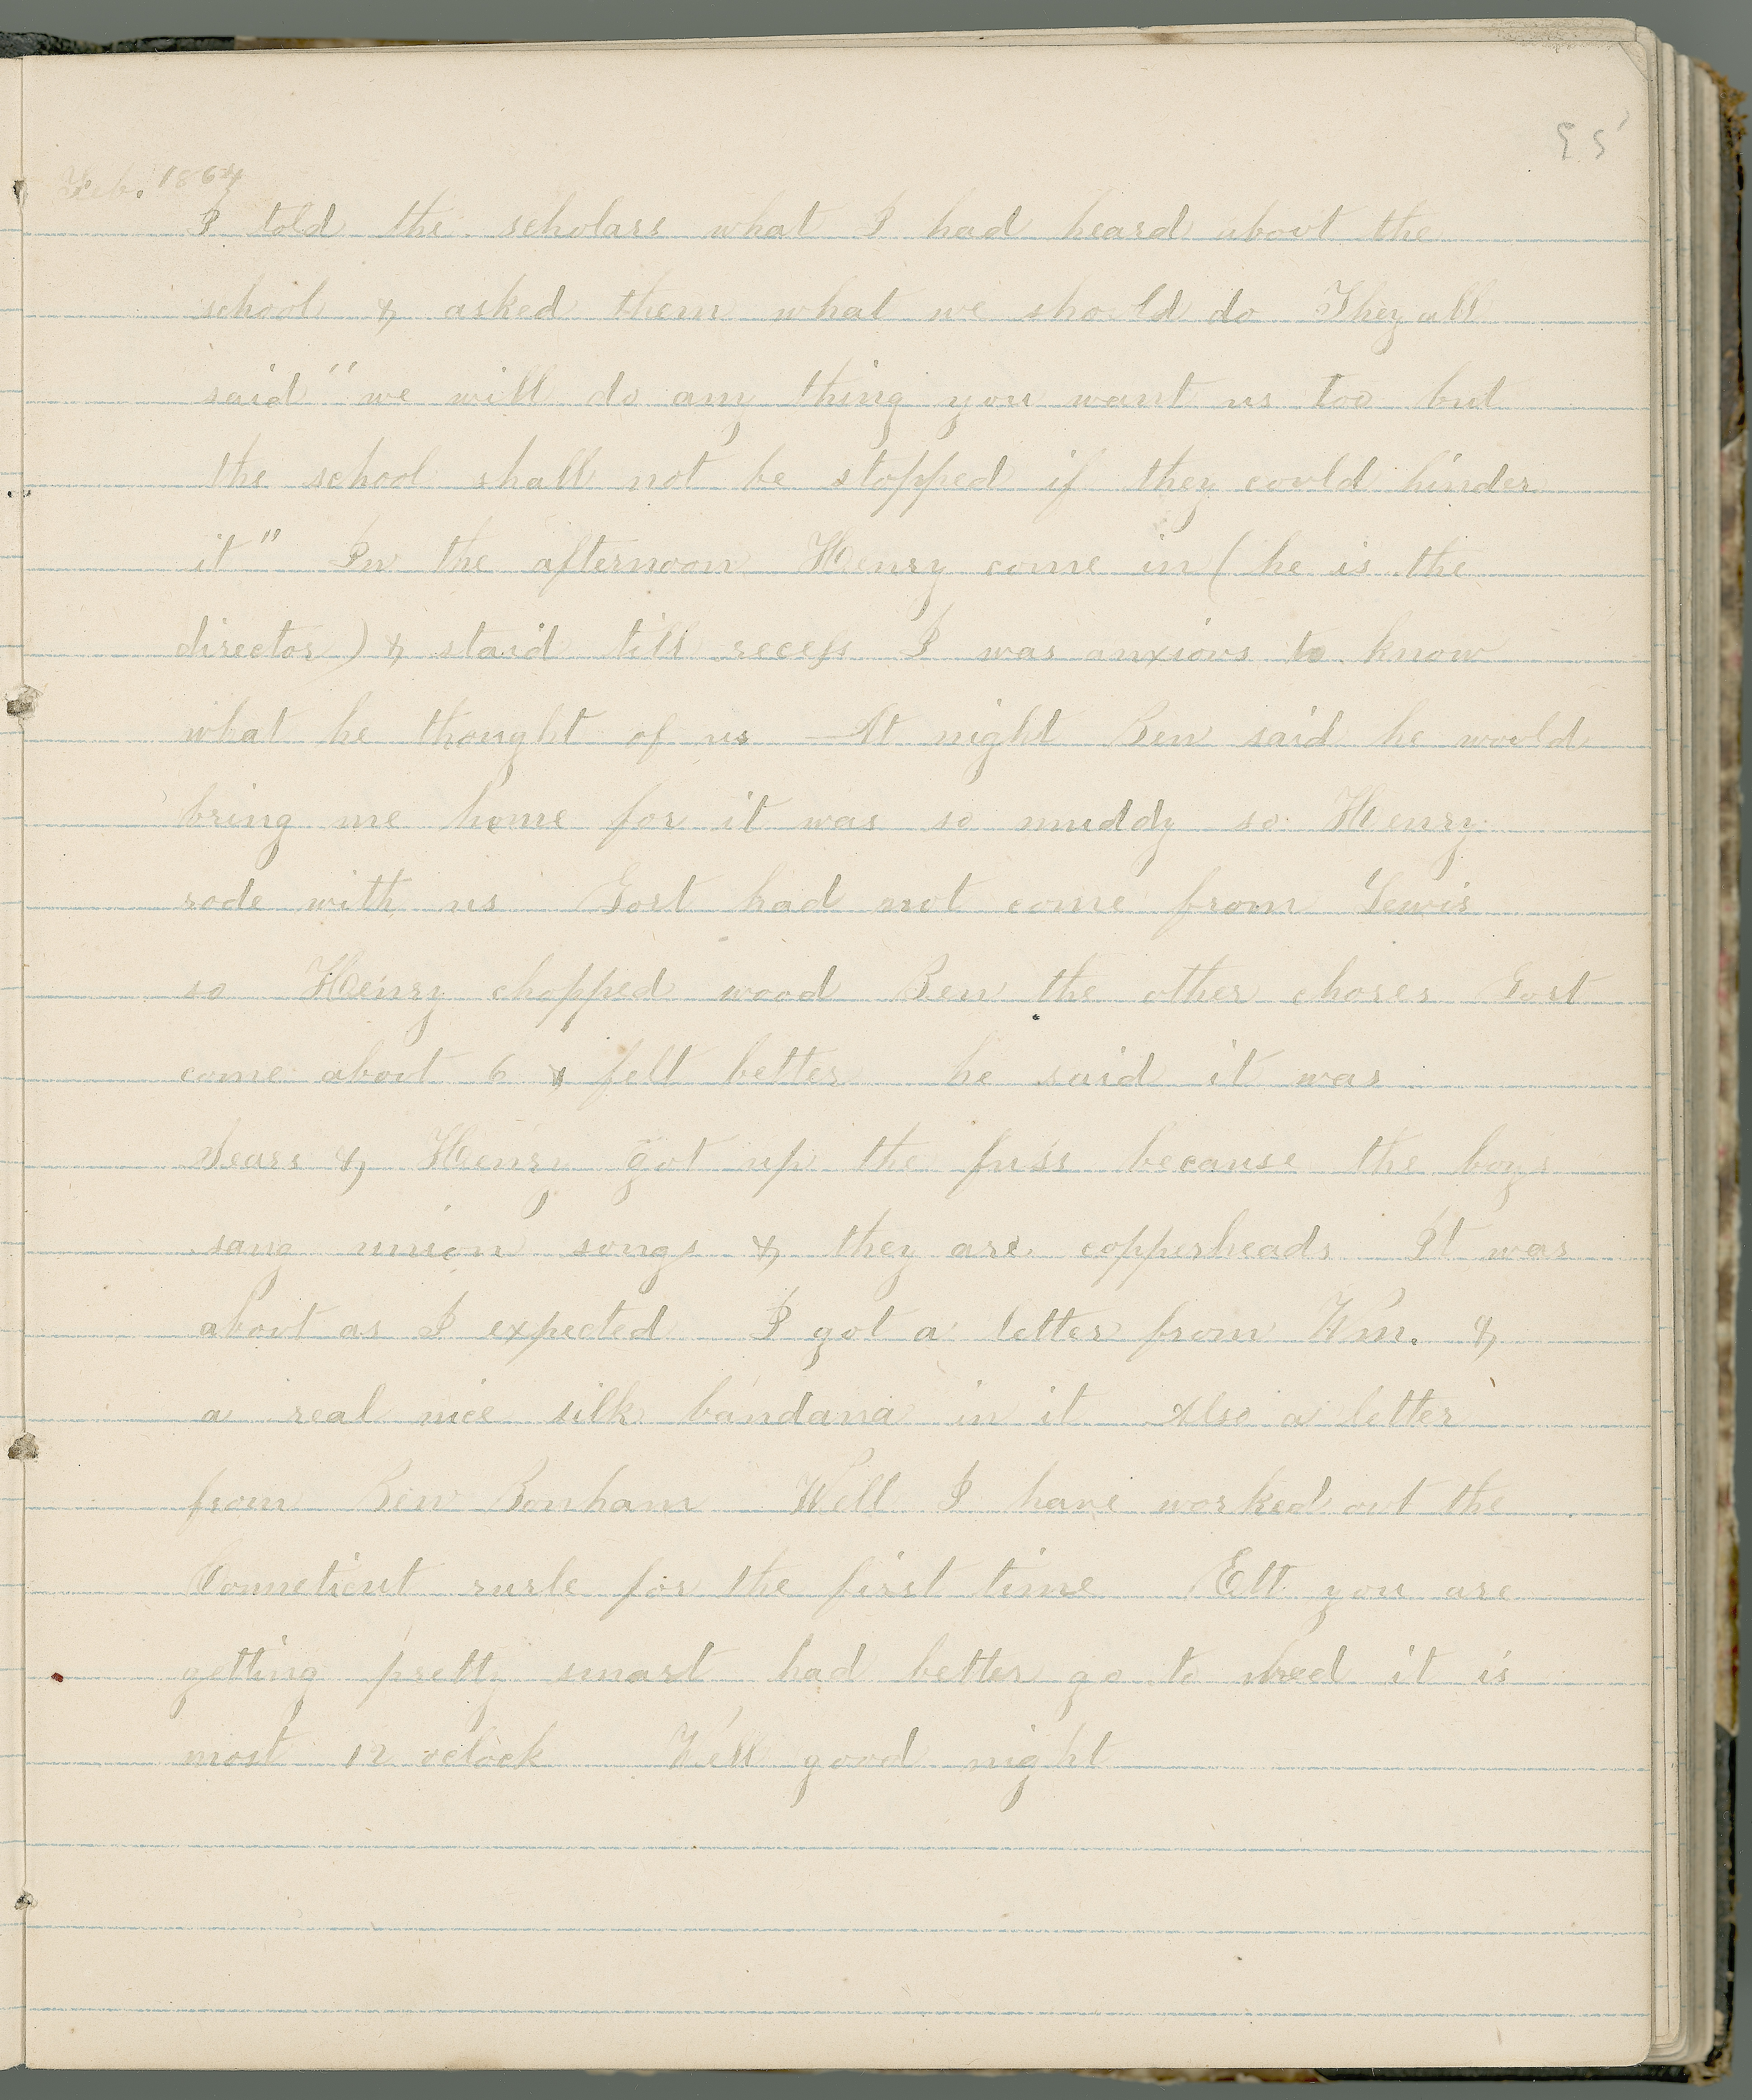 95
Feb. 1864
I told the scholars what I had heard about the
school & asked them what we should do They all
said "we will do any thing you want us too but
the school shall not be stopped if they could hinder
it" In the afternoon Henry come in (he is the
director) & staid till recess I was anxious to know
what he thought of us At night Ben said he would
bring me home for it was so muddy so Henry
rode with us Gort had not come from Lewis
so Henry chopped wood Ben the other chores Gort
come about 6 & felt better he said it was
Sears & Henry got up the fuss because the boys
sang union songs & they are copperheads It was
about as I expected I got a letter from Wm. &
a real nice silk bandana in it Also a letter
from Ben Bonham Well I have worked out the
Conneticut rurle for the first time Ett you are
getting pretty smart had better go to bed it is
most 12 oclock Well good night